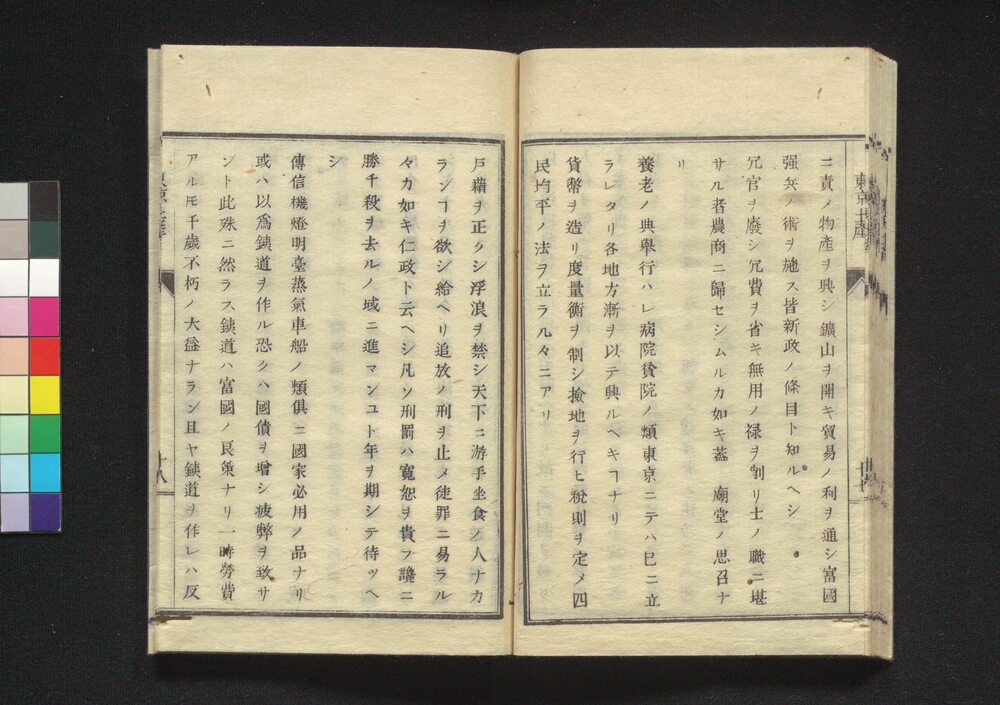 東京土産
ニ責メ物産ヲ興シ鑛山ヲ開キ貿易ノ利ヲ通シ富國
强兵ノ術ヲ施ス皆新政ノ條目ト知ルヘシ
冗官ヲ廢シ冗費ヲ省キ無用ノ禄ヲ削リ士ノ職ニ堪
サル者農商ニ歸セシムルカ如キ葢 廟堂ノ思召ナ
リ
養老ノ典舉行ハレ病院貧院ノ類東京ニテハ巳ニ立
ラレタリ各地方漸ヲ以テ興ルヘキヿナリ
貨幣ヲ造リ度量衡ヲ制シ撿地ヲ行ヒ稅則ヲ定メ四
民均平ノ法ヲ立ラル々ニアリ
戸藉ヲ正クシ浮浪ヲ禁シ天下ニ游手坐食ノ人ナカ
ランヿヲ欲シ給ヘリ追放ノ刑ヲ止メ徒罪ニ易ラル
々カ如キ仁政ト云ヘシ凡ソ刑罰ハ寬恕ヲ貴フ讒ニ
勝千殺ヲ去ルノ域ニ進マンコト年ヲ期シテ待ツヘ
シ
傳信機燈明臺蒸氣車船ノ類俱ニ國家必用ノ品ナリ
或ハ以爲銕道ヲ作ル恐クハ國債ヲ增シ疲弊ヲ致サ
ント此殊ニ然ラス銕道ハ富國ノ良策ナリ一時勞費
アルモ千歲不朽ノ大益ナラン且ヤ銕道ヲ作レハ反
十八